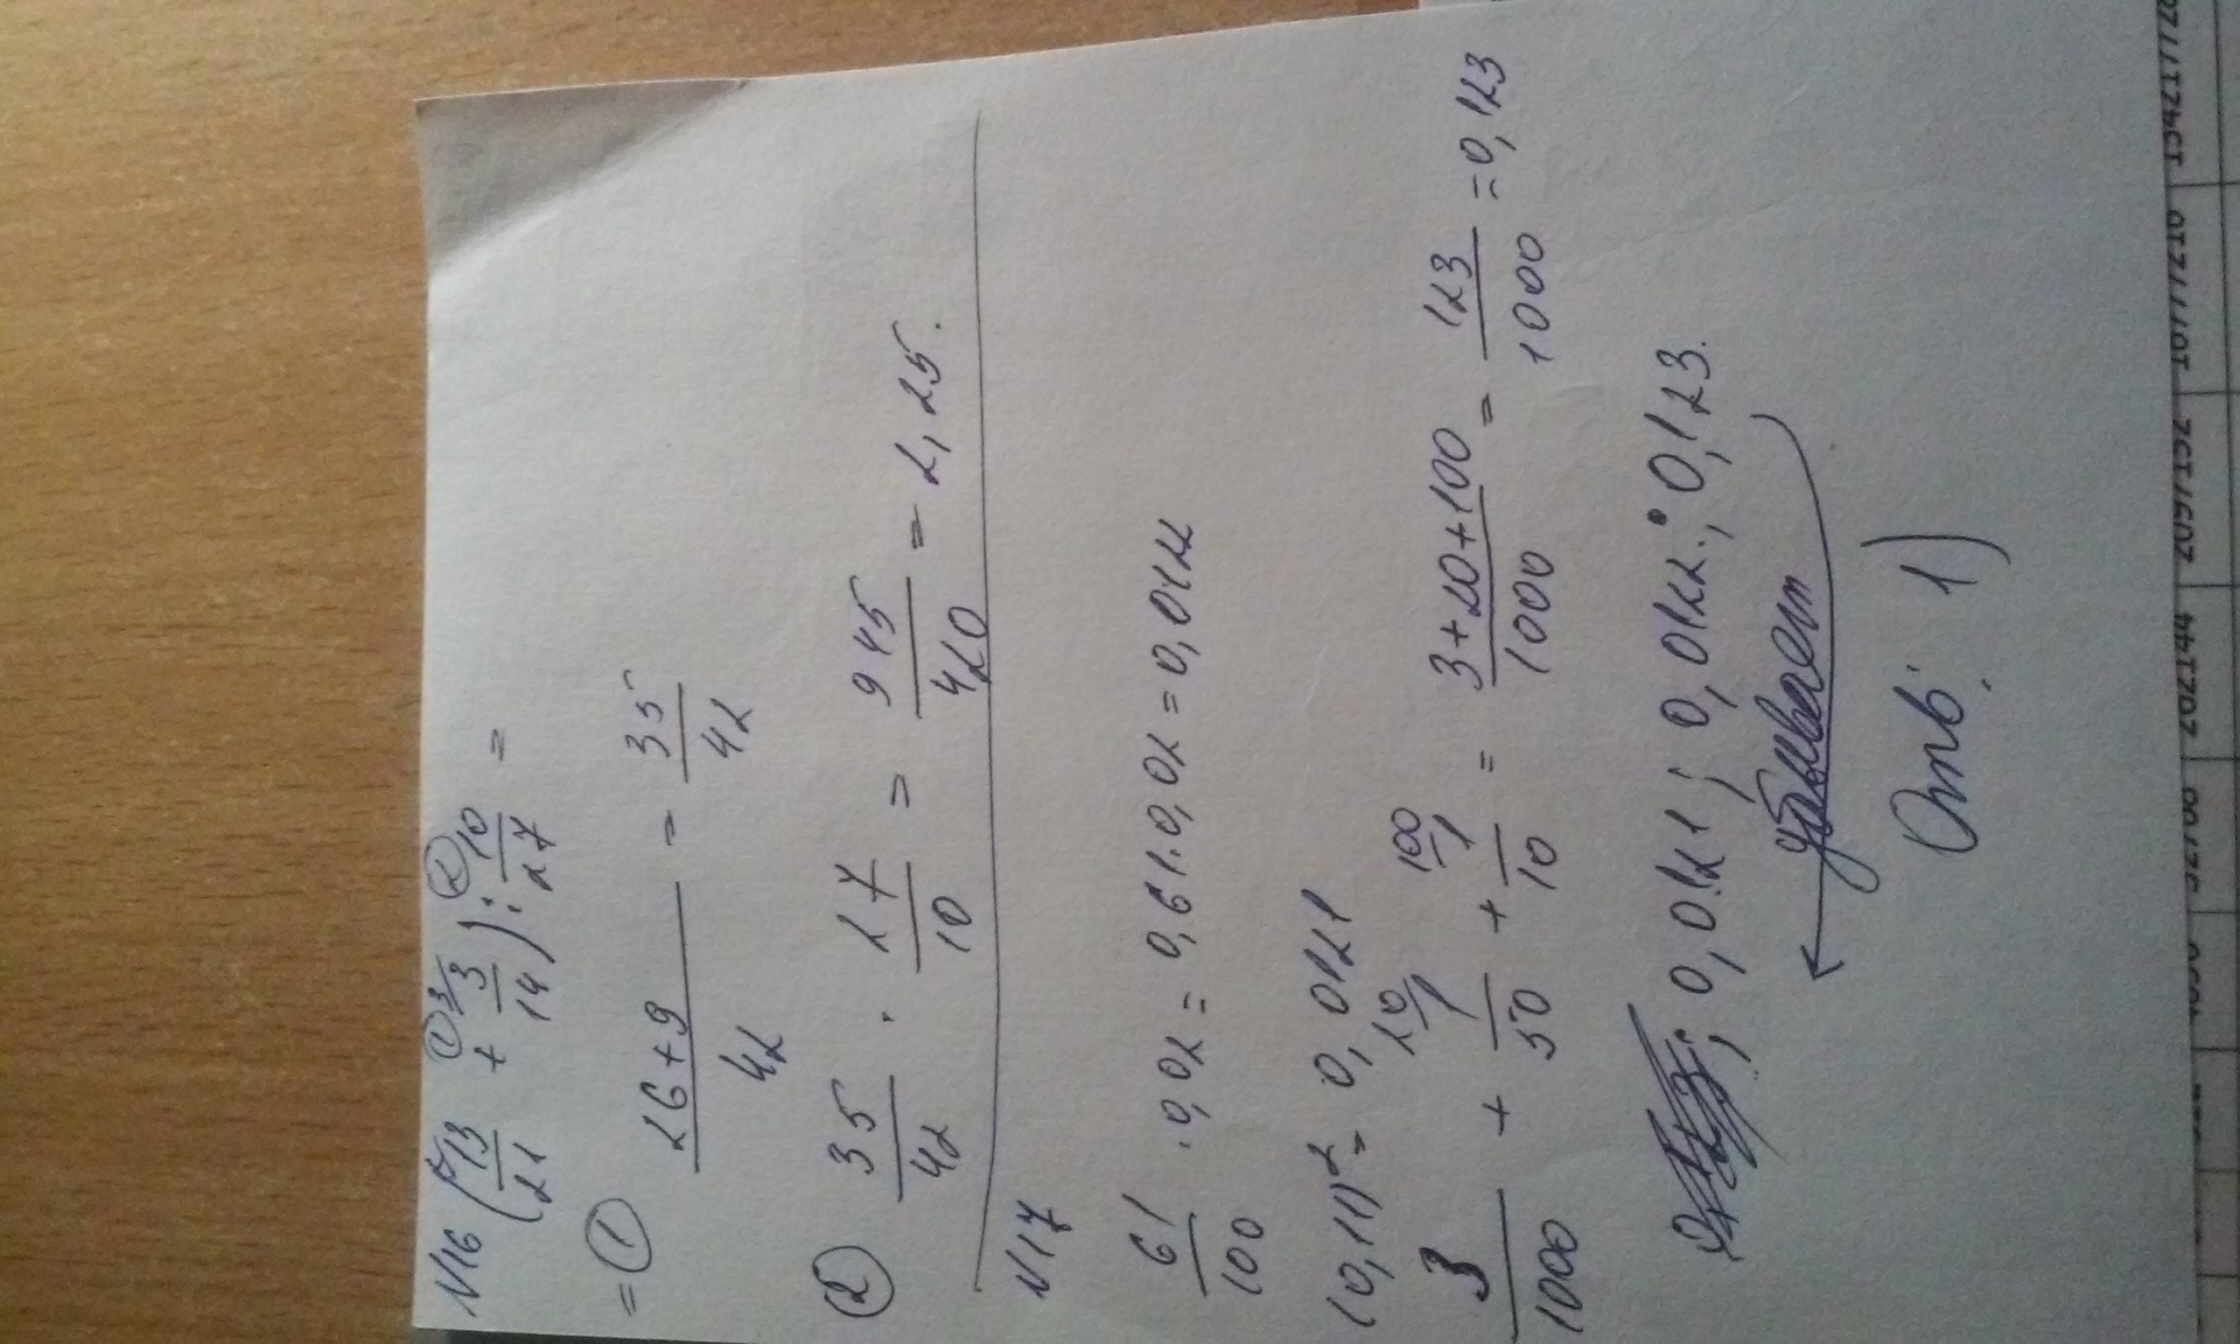 N16 (13/21 + 3/14) : 10/27 =
= ① (26+9)/42 = 35/42
② 35/42 · 27/10 = 945/420 = 2,25.
N17
61/100 · 0,02 = 0,61 · 0,02 = 0,0122
(0,11)² = 0,0121
3/1000 + 1/50 + 1/10 = (3+20+100)/1000 = 123/1000 = 0,123
; 0,0121 ; 0,0122 ; 0,123.
убывает
Отв: 1)